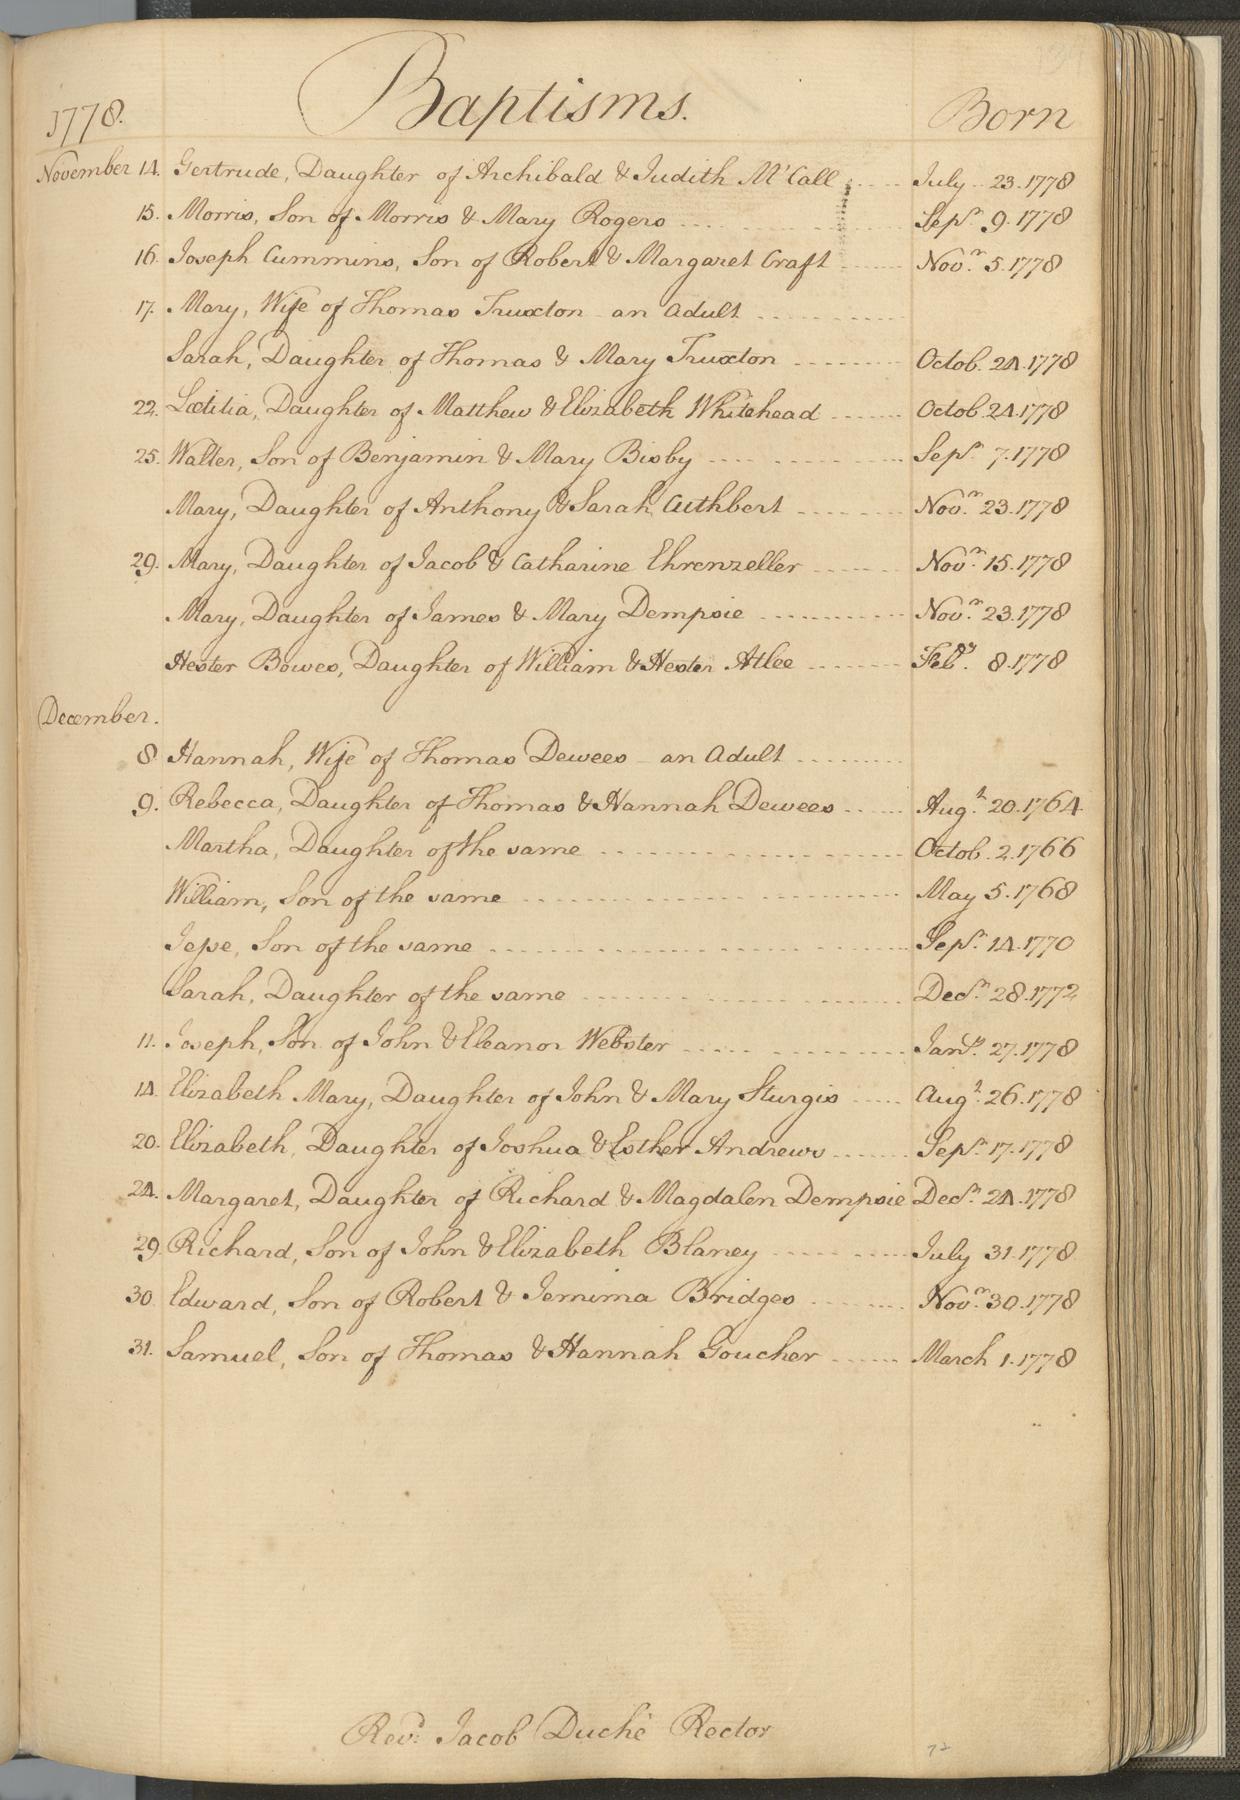 1778. Baptisms. Born
November 14. Gertrude, Daughter of Archibald & Judith McCall ..... July 23. 1778
15. Morris, Son of Morris & Mary Rogers ..... Sepr. 9. 1778
16. Joseph Cummins, Son of Robert & Margaret Craft ..... Novr. 5. 1778
17. Mary, Wife of Thomas Truxton - an Adult .....
Sarah, Daughter of Thomas & Mary Truxton ..... Octob. 24. 1778
22. Lætitia, Daughter of Matthew & Elizabeth Whitehead ..... Octob. 24. 1778
25. Walter, Son of Benjamin & Mary Bisby ..... Sepr. 7. 1778
Mary, Daughter of Anthony & Sarah Cuthbert ..... Novr. 23. 1778
29. Mary, Daughter of Jacob & Catharine Ehrenzeller ..... Novr. 15. 1778
Mary, Daughter of James & Mary Dempsie ..... Novr. 23. 1778
Hester Bowes, Daughter of William & Hester Atlee ..... Feby. 8. 1778
December.
8 Hannah, Wife of Thomas Dewees - an Adult .....
9. Rebecca, Daughter of Thomas & Hannah Dewees ..... Augt. 20. 1764
Martha, Daughter of the same ..... Octob. 2. 1766
William, Son of the same ..... May 5. 1768
Jesse, Son of the same ..... Sepr. 14. 1770
Sarah, Daughter of the same ..... Decr. 28. 1772
11. Joseph, Son of John & Eleanor Webster ..... Jany. 27. 1778
14. Elizabeth Mary, Daughter of John & Mary Sturgis ..... Augt. 26. 1778
20. Elizabeth, Daughter of Joshua & Esther Andrews ..... Sepr. 17. 1778
24. Margaret, Daughter of Richard & Magdalen Dempsie Decr. 24. 1778
29. Richard, Son of John & Elizabeth Blaney ..... July 31. 1778
30. Edward, Son of Robert & Jemima Bridges ..... Novr. 30. 1778
31. Samuel, Son of Thomas & Hannah Goucher ..... March 1. 1778
Revd. Jacob Duché Rector
72